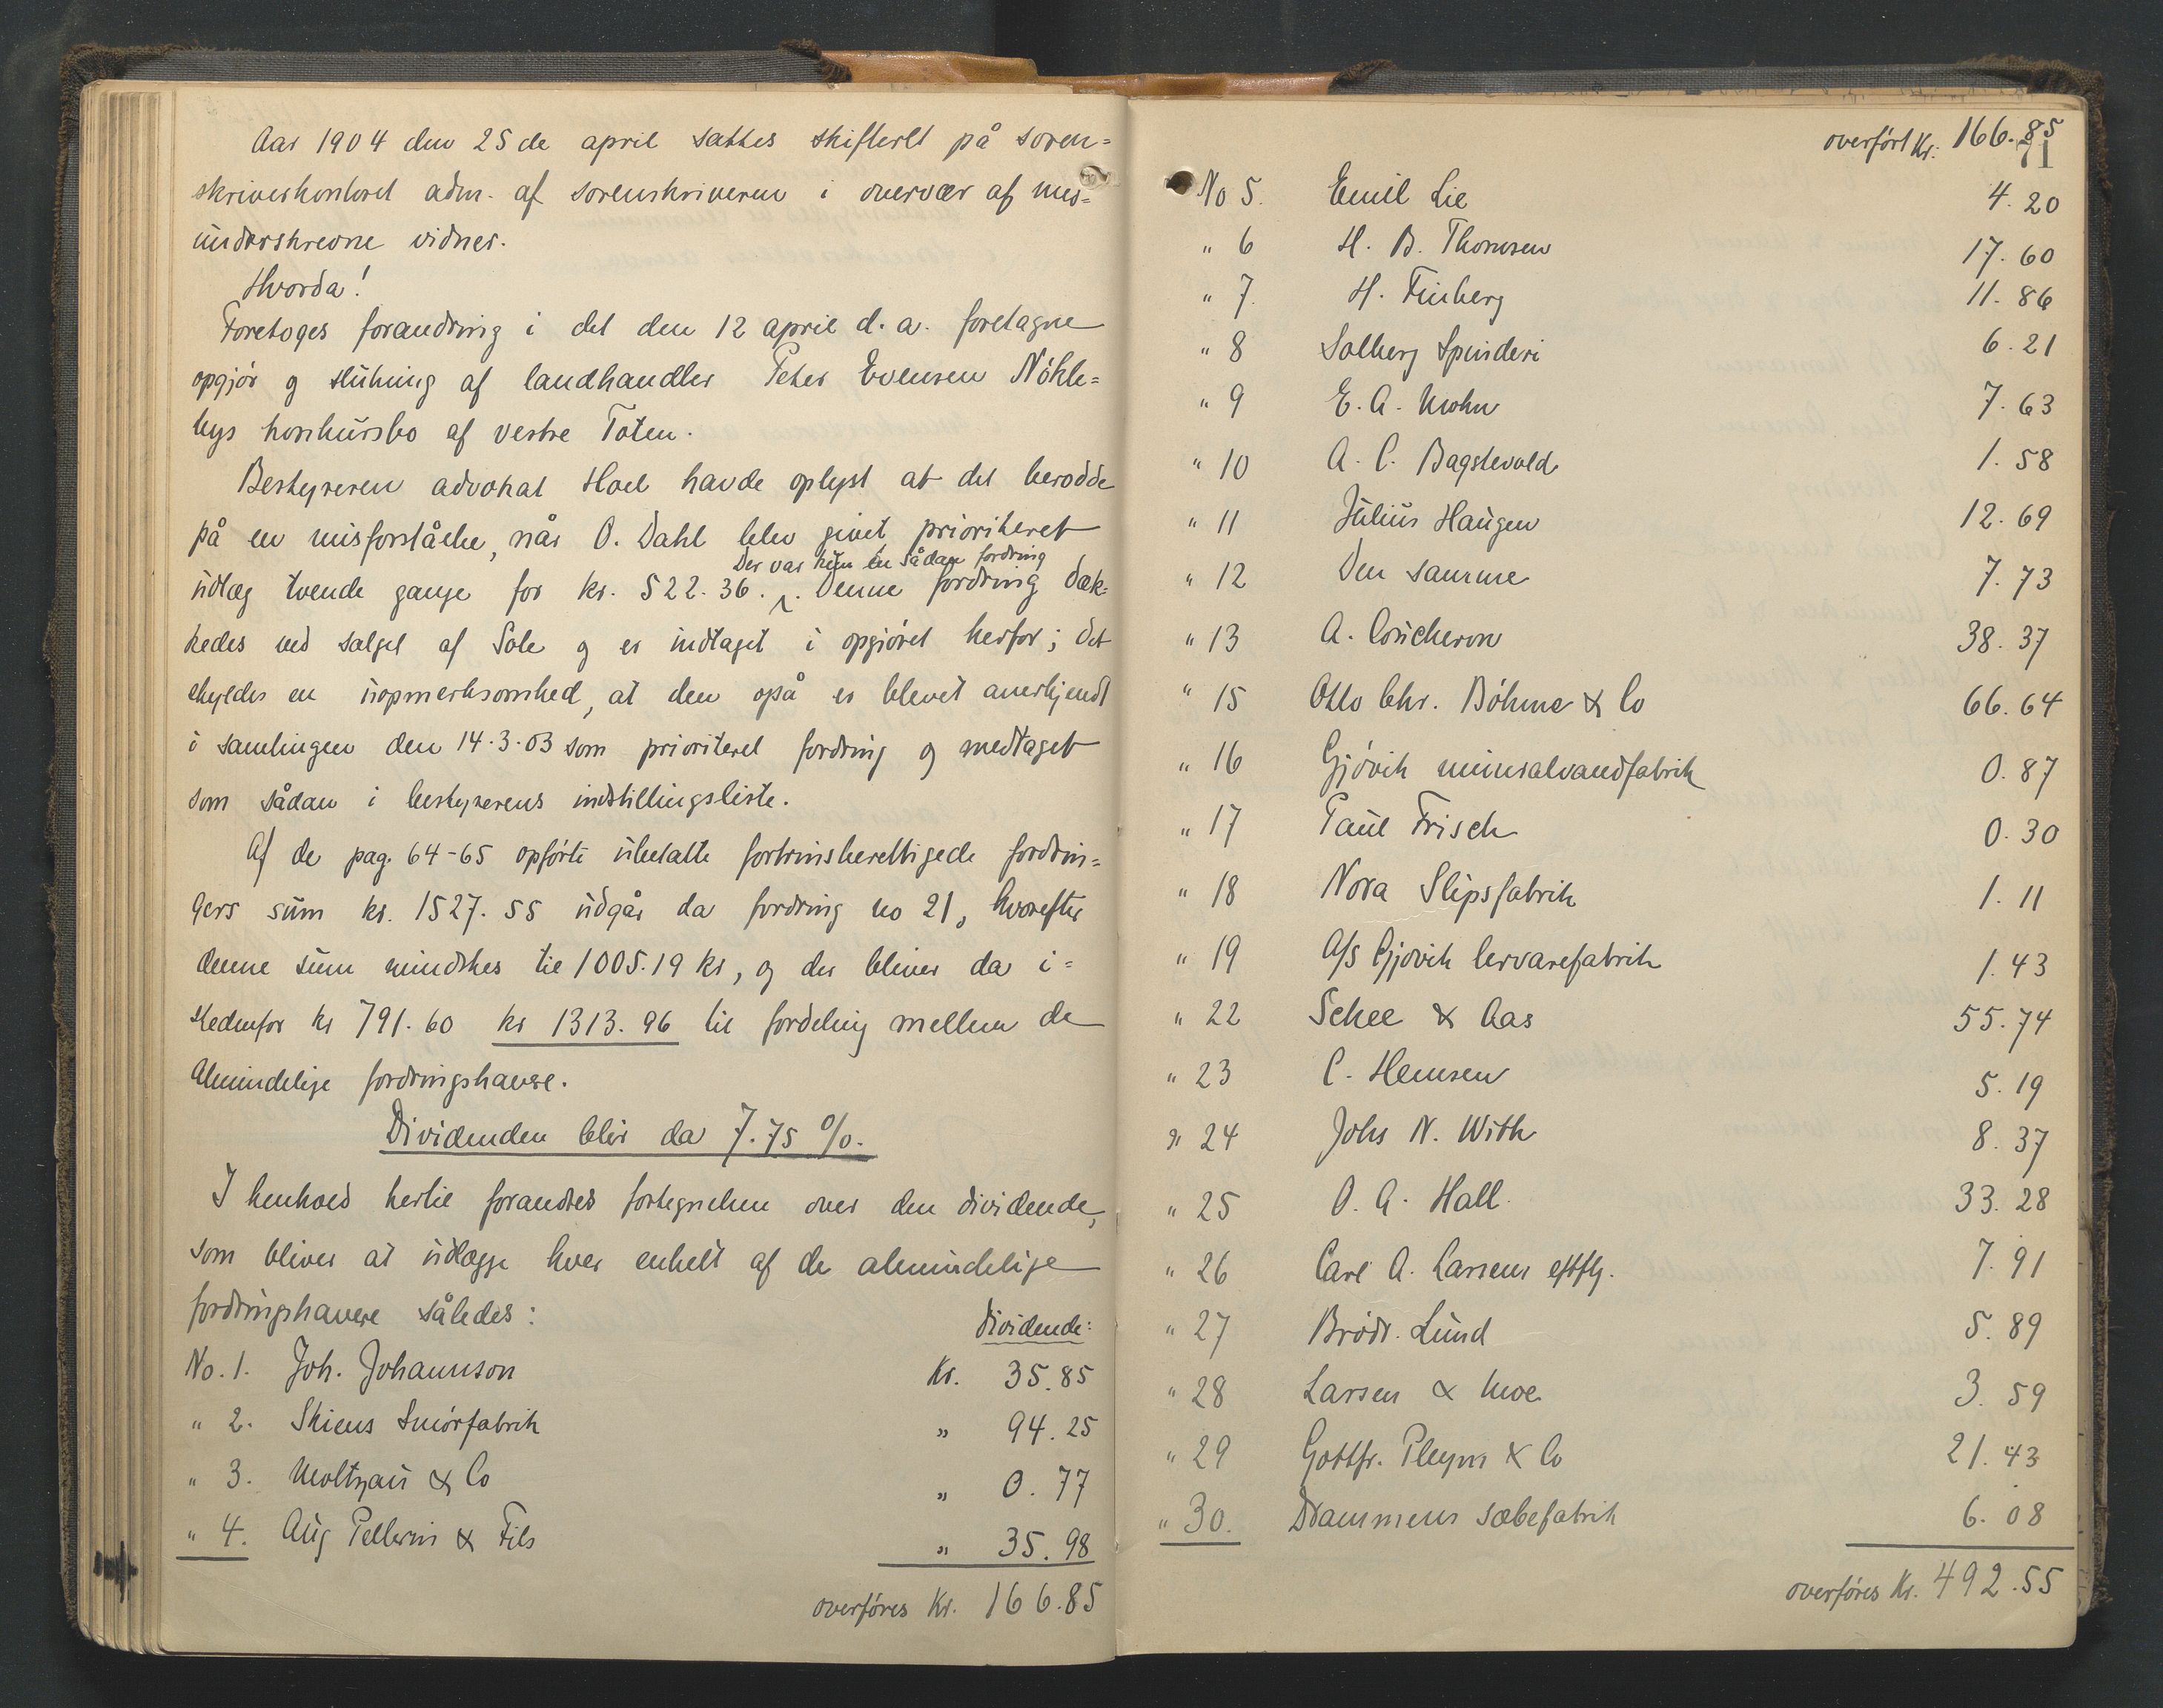 Aar 1904 den 25de april sattes skifteret på soren=
skriverkontoret adm. af sorenskriveren i overvær af med=
underskrevne vidner.
Hvorda!
Foretoges forandring i det den 12 april d.a. foretagne
opgjør og slutning af landhandler Peter Evensen Nøkle=
bys konkursbo af vestre Toten.
Bestyreren advokat Hoel havde oplyst at det berodde
på en misforståelse, når O. Dahl blev givet prioriteret
Der var kun en sådan fordring
udlæg tvende gange for kr. 522.36. Denne fordring dæk=
kedes ved salget af Sole og er indtaget i opgjøret herfor; det
skyldes en uopmerksomhed, at den også er blevet anerkjendt
i samlingen den 14.3.03 som prioriteret fordring og medtaget
som sådan i bestyrerens indstillingsliste.
Af de pag. 64-65 opførte ubetalte fortrinsberettigede fordrin=
gers sum kr. 1527.55 udgår da fordring no 21, hvorefter
denne sum mindskes til 1005.19 kr, og der bliver da i=
stedenfor kr 791.60 kr 1313.96 til fordeling mellem de
Almindelige fordringshavere.
Dividenden blir da 7.75 %.
I henhold hertil forandres fortegnelsen over den dividende,
som bliver at udlægge hver enkelt af de almindelige
fordringshavere således:
Dividende:
No. 1. Joh. Johannson Kr. 35.85
" 2. Skiens Smørfabrik " 94.25
" 3. Moltzau & Co " 0.77
" 4. Aug Pellerin & Fils " 35.98
overføres Kr. 166.85
overført Kr. 166.85
71
No 5. Emil Lie 4.20
" 6 H. B. Thomsen 17.60
" 7. H. Finberg 11.86
" 8 Solberg Spinderi 6.21
" 9 E. A. Mohn 7.63
" 10 A. C. Bagstevold 1.58
" 11 Julius Haugen 12.69
" 12 Den samme 7.73
" 13 A. Coucheron 38.37
" 15 Otto Chr. Böhme & Co 66.64
" 16 Gjøvik mineralvandfabrik 0.87
" 17 Paul Frisch 0.30
" 18 Nora Slipsfabrik 1.11
" 19 A/S Gjøvik lervarefabrik 1.43
" 22 Schee & Aas 55.74
" 23 C. Hemsen 5.19
" 24 Johs N. With 8.37
" 25 O. A. Hall 33.28
" 26 Carl A. Larsens eftflg. 7.91
" 27 Brødr. Lund 5.89
" 28 Larsen & Moe 3.59
" 29 Gottfr. Pleym & Co 21.43
" 30. Drammens sæbefabrik 6.08
overføres Kr. 492.55